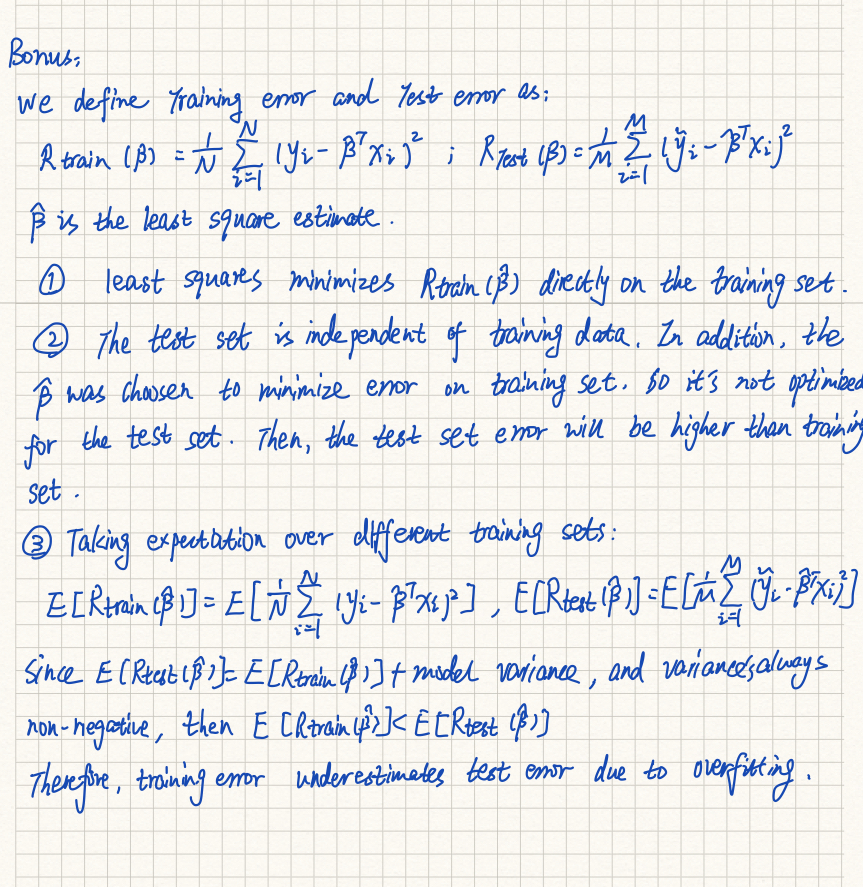 Bonus:
We define Training error and Test error as:
R train (β) = 1/N Σ_{i=1}^{N} (yi − β^T xi)² ; R Test (β) = 1/M Σ_{i=1}^{M} (ỹi − β^T xi)²
β̂ is the least square estimate.
① least squares minimizes Rtrain (β̂) directly on the training set.
② The test set is independent of training data. In addition, the
β̂ was choosen to minimize error on training set. so it's not optimized
for the test set. Then, the test set error will be higher than training
set.
③ Taking expectation over different training sets:
E[Rtrain (β̂)] = E[1/N Σ_{i=1}^{N} (yi − β̂^T xi)²], E[Rtest (β̂)] = E[1/M Σ_{i=1}^{M} (ỹi − β̂^T xi)²]
Since E[Rtest (β̂)] = E[Rtrain (β̂)] + model variance, and variance's always
non-negative, then E[Rtrain (β̂)] < E[Rtest (β̂)]
Therefore, training error underestimates test error due to overfitting.